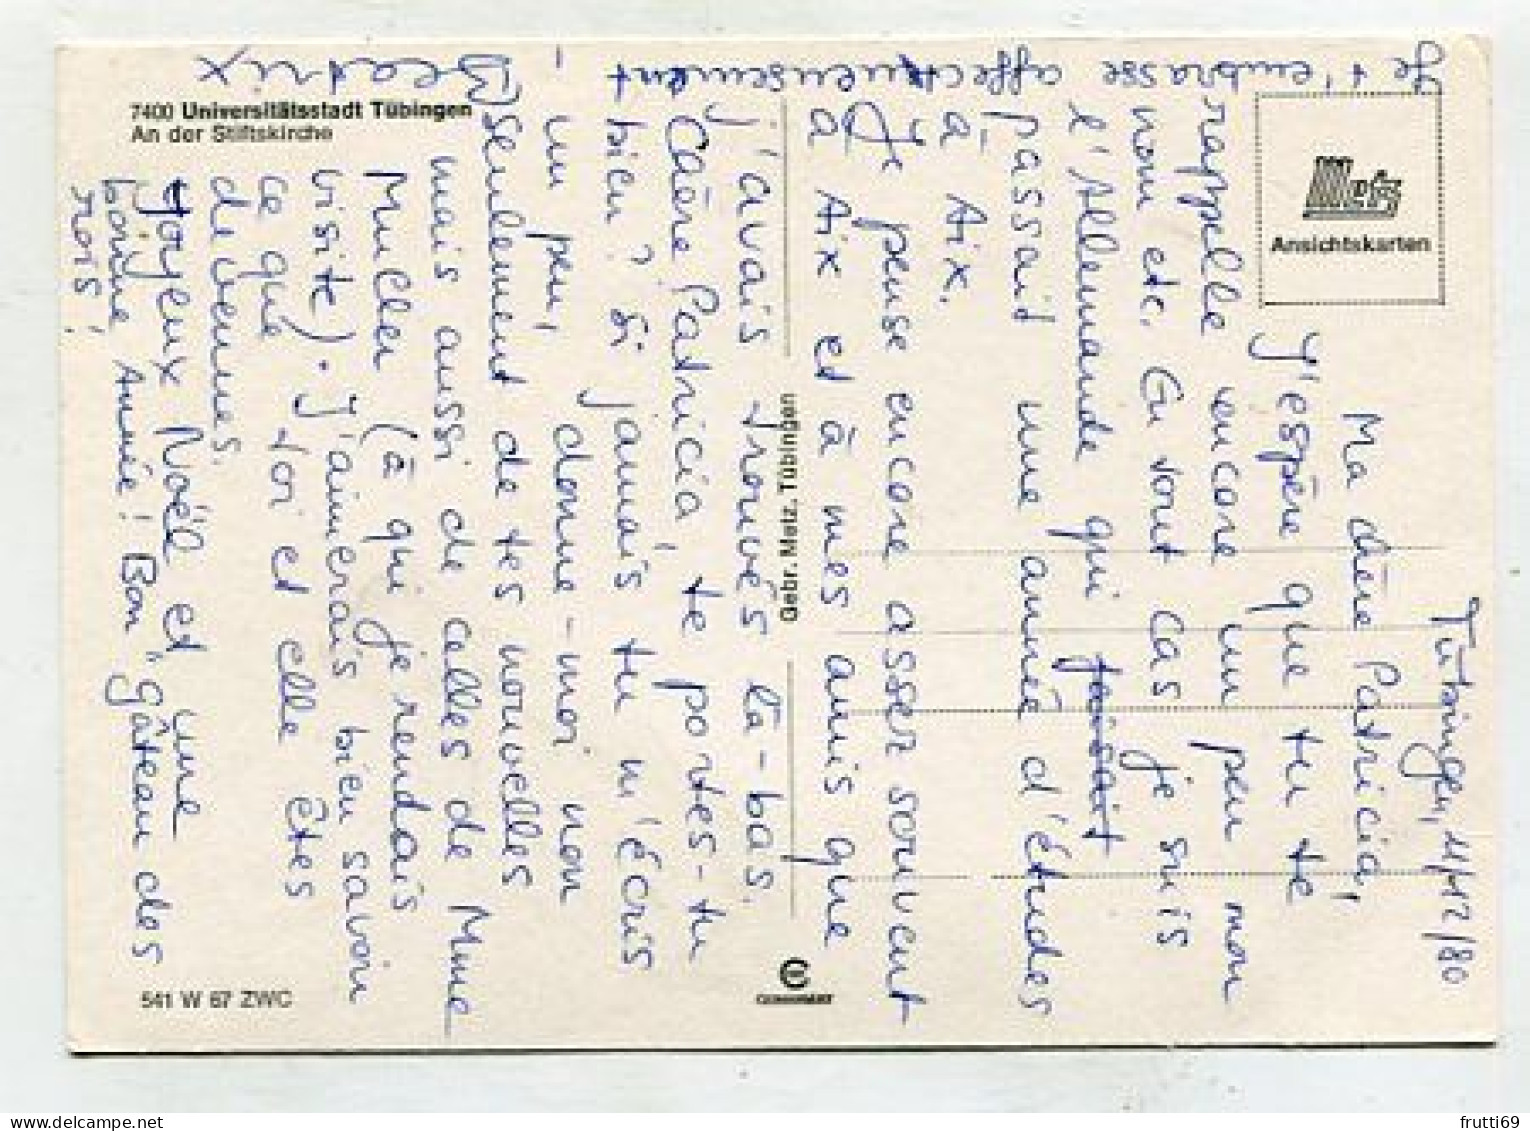 7400 Universitätsstadt Tübingen
An der Stiftskirche
Metz
Ansichtskarten
Gebr. Metz, Tübingen
541 W 67 ZWC
Tübingen, 11/12/80
Ma chère Patricia,
J'espère que tu te
rappelle encore un peu mon
nom etc. En tout cas je suis
l'Allemande qui faisait
passait une année d'études
à Aix.
Je pense encore assez souvent
à Aix et à mes amis que
j'avais trouvés là-bas.
Chère Patricia, te portes-tu
bien? Si jamais tu m'écris
un peu, donne-moi non
seulement de tes nouvelles
mais aussi de celles de Mme
Muller (à qui je rendais
visite). J'aimerais bien savoir
ce que toi et elle êtes
devenues.
Joyeux Noël et une
bonne Année! Bon "gâteau des
rois!
Je t'embrasse affectueusement
- Beatrix
frutti69